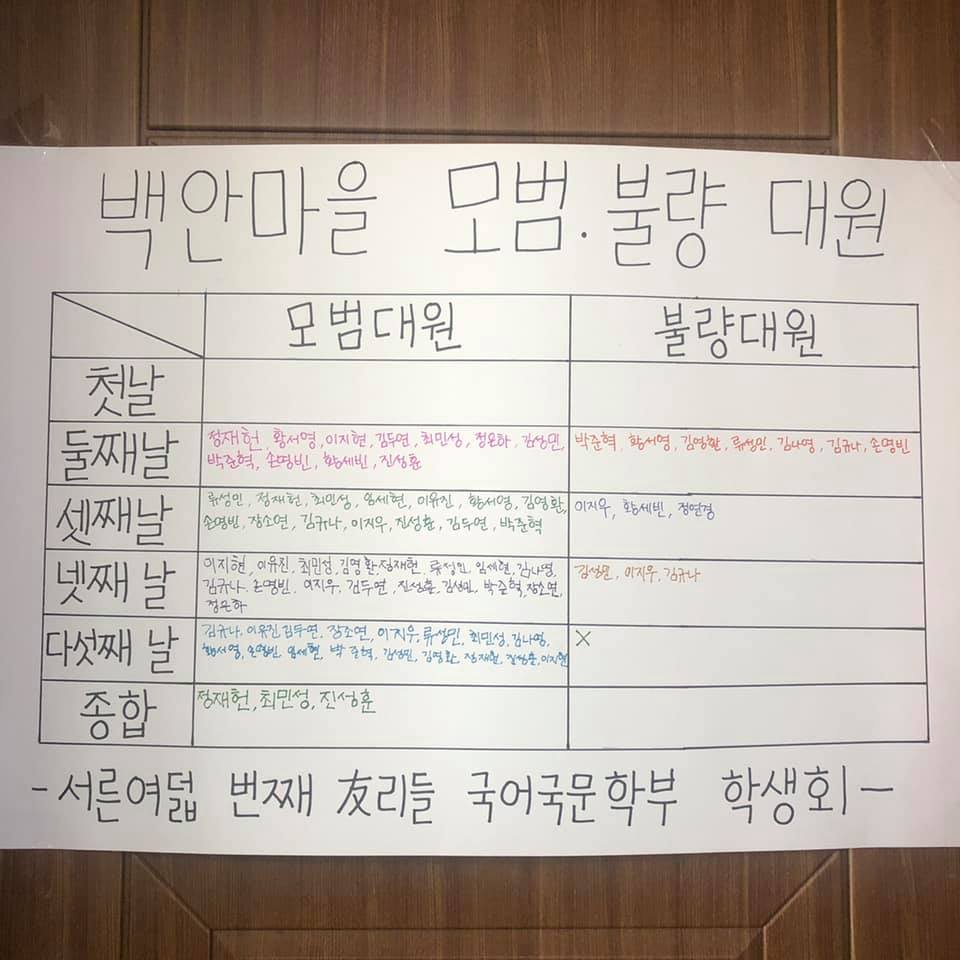 백안마을 모범.불량 대원
모범대원 불량대원
첫날
둘째날
정재헌, 황서영, 이지현, 김두연, 최민성, 정은하, 김성민,
박준혁, 손명빈, 황세빈, 진성훈
박준혁, 황서영, 김영환, 류성민, 김나영, 김규나, 손명빈
셋째날
류성민, 정재헌, 최민성, 임세현, 이유진, 황서영, 김영환,
손명빈, 장소연, 김규나, 이지우, 진성훈, 김두연, 박준혁
이지우, 황세빈, 정연경
넷째 날
이지현, 이유진, 최민성, 김영환, 정재헌, 류성민, 임세현, 김나영,
김규나, 손명빈, 이지우, 김두연, 진성훈, 김성민, 박준혁, 장소연,
정은하
김성민, 이지우, 김규나
다섯째 날
김규나, 이유진, 김두연, 장소연, 이지우, 류성민, 최민성, 김나영,
황서영, 손명빈, 임세현, 박준혁, 김성민, 김영환, 정재헌, 진성훈, 이지현
X
종합
정재헌, 최민성, 진성훈
-서른여덟 번째 友리들 국어국문학부 학생회-